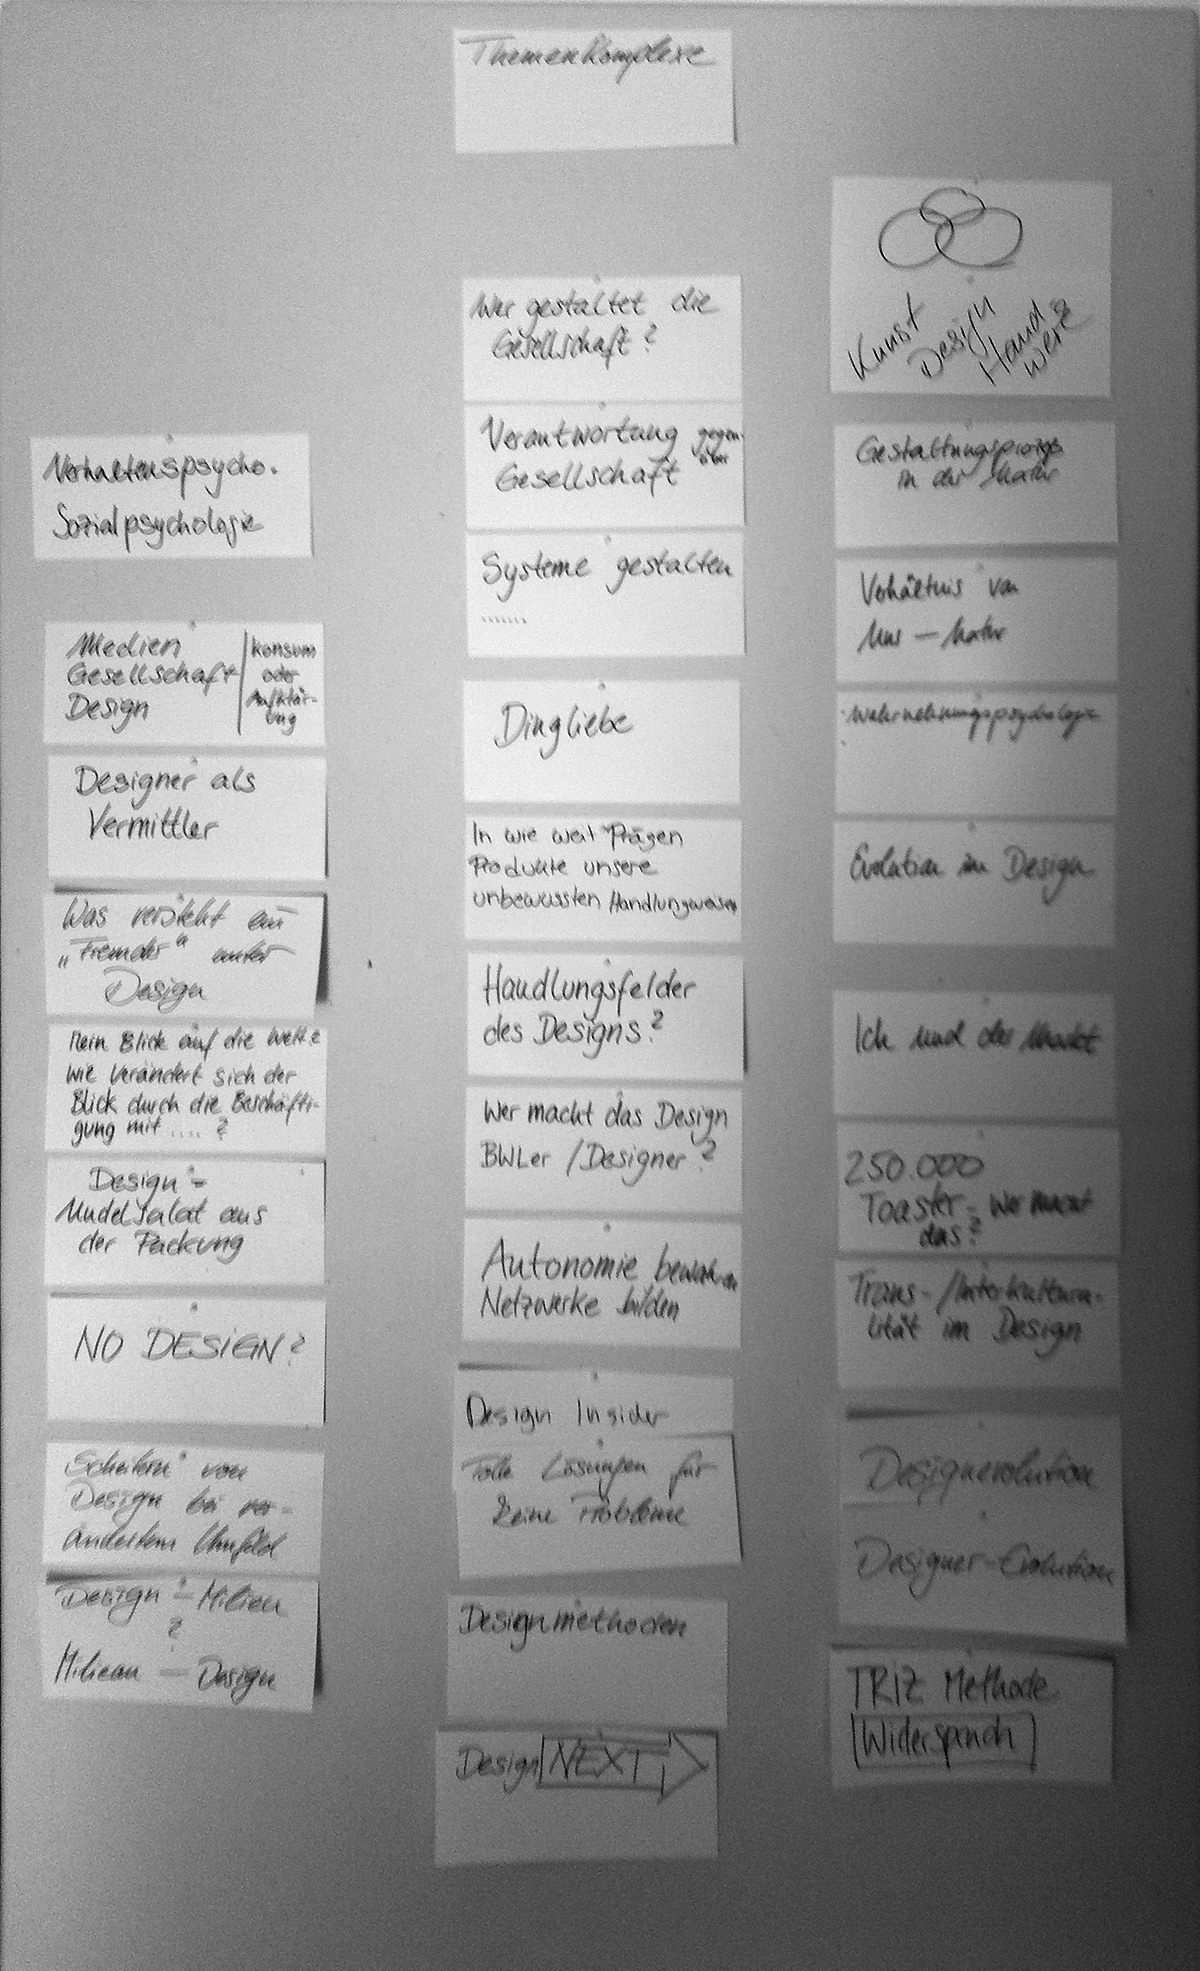 Themenkomplexe
Verhaltenspsycho.
Sozialpsychologie
Medien
Gesellschaft
Design
Konsum
oder
Aufklär-
ung
Designer als
Vermittler
Was versteht ein
„Fremder" unter
Design
Mein Blick auf die Welt?
Wie verändert sich der
Blick durch die Beschäfti-
gung mit .... ?
Design -
Nudelsalat aus
der Packung
NO DESIGN?
Scheitern von
Design bei ver-
ändertem Umfeld
Design - Milieu
?
Milieau - Design
Wer gestaltet die
Gesellschaft?
Verantwortung gegen-
über
Gesellschaft
Systeme gestalten
.......
Dingliebe
In wie weit Prägen
Produkte unsere
unbewussten Handlungsweisen
Handlungsfelder
des Designs?
Wer macht das Design
BWLer / Designer?
Autonomie bewahren
Netzwerke bilden
Design Insider
Tolle Lösungen für
keine Probleme
Designmethoden
Design NEXT
Kunst
Design
Hand
werk
Gestaltungsprozess
in der Natur
Verhältnis von
Uns - Natur
Wahrnehmungspsychologie
Evolution im Design
Ich und der Markt
250.000
Toaster - Wer macht
das?
Trans-/Interkultura-
lität im Design
Designevolution
Designer-Evolution
TRIZ Methode
[Widerspruch]